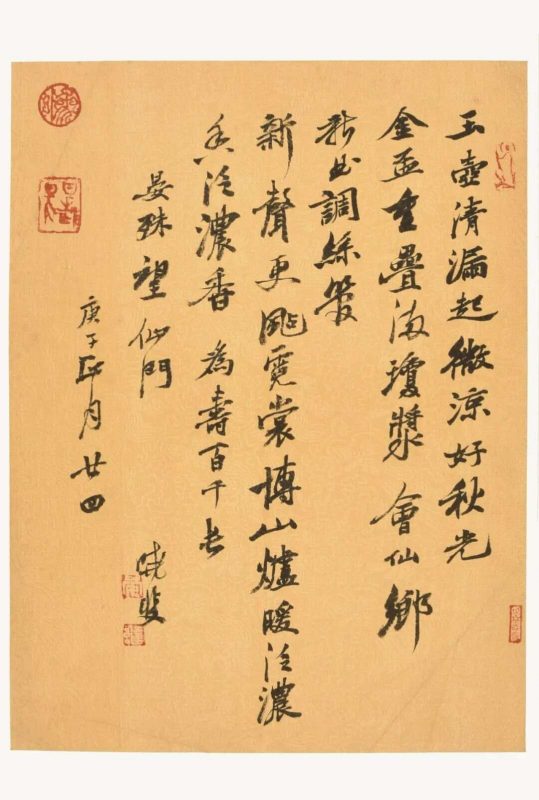 玉壺清漏起微涼好秋光
金盃重疊滿瓊漿 會仙鄉
新曲調絲管
新聲更颭霓裳博山爐暖泛濃
香泛濃香 為壽百千長
晏殊望仙門
庚子 月廿四